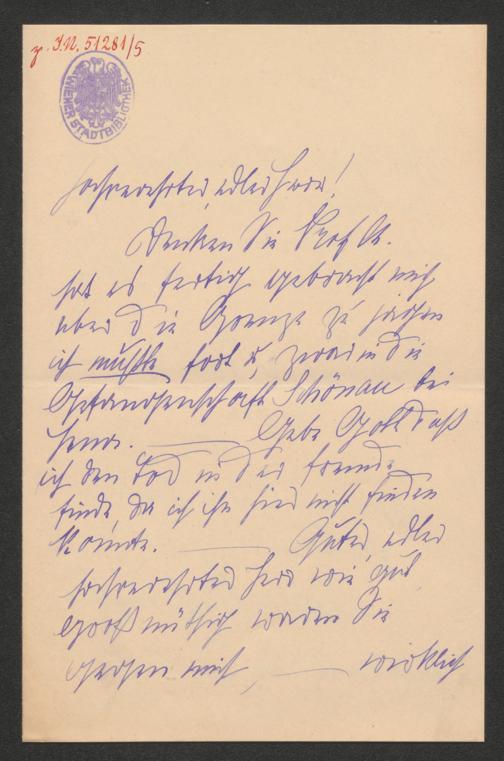 z. I.N. 51281/5
WIENER STADTBIBLIOTHEK
Hochverehrter, edler Herr!
Denken Sie Prof A.
hat es fertig gebracht mich
über die Grenze zu jagen
ich mußte fort u. zwar in die
Gefangenschaft Schönau bei
— Gebe Gott daß
ich den Tod in der Fremde
finde, da ich ihn hier nicht finden
konnte. — Guter, edler
hochverehrter Herr wie gut,
großmüthig waren Sie
gegen mich, — wirklich